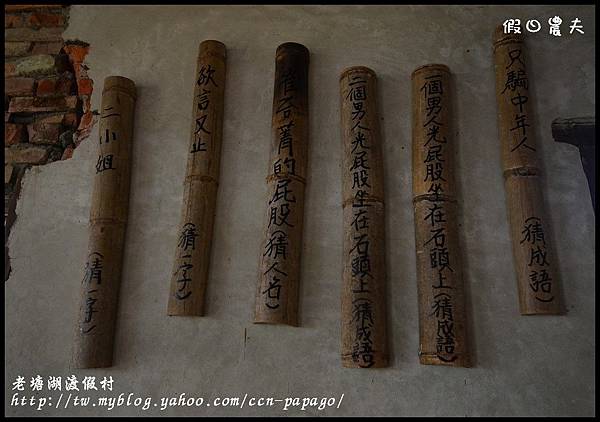 假日農夫
只騙中年人(猜成語)
一個男人光屁股坐在石頭上(猜成語)
二個男人光屁股坐在石頭上(猜成語)
崔苔菁的屁股(猜人名)
欲言又止(猜一字)
二小姐(猜一字)
老塘湖渡假村
http://tw.myblog.yahoo.com/ccn-papago/